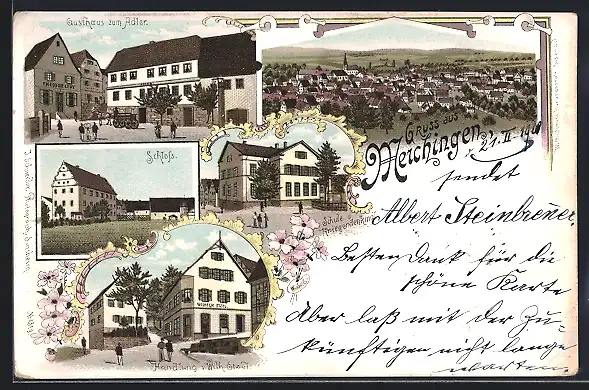 Gasthaus zum Adler.
Gruss aus
Merchingen,
d. 21. II. 190
Schloß.
Schule
Kriegerdenkmal
Handlung v. Wilh. Stahl
sendet
Albert Steinbrenner.
Besten Dank für die
schöne Karte
Aber laß mit der Zu-
künftigen nicht lange
warten.